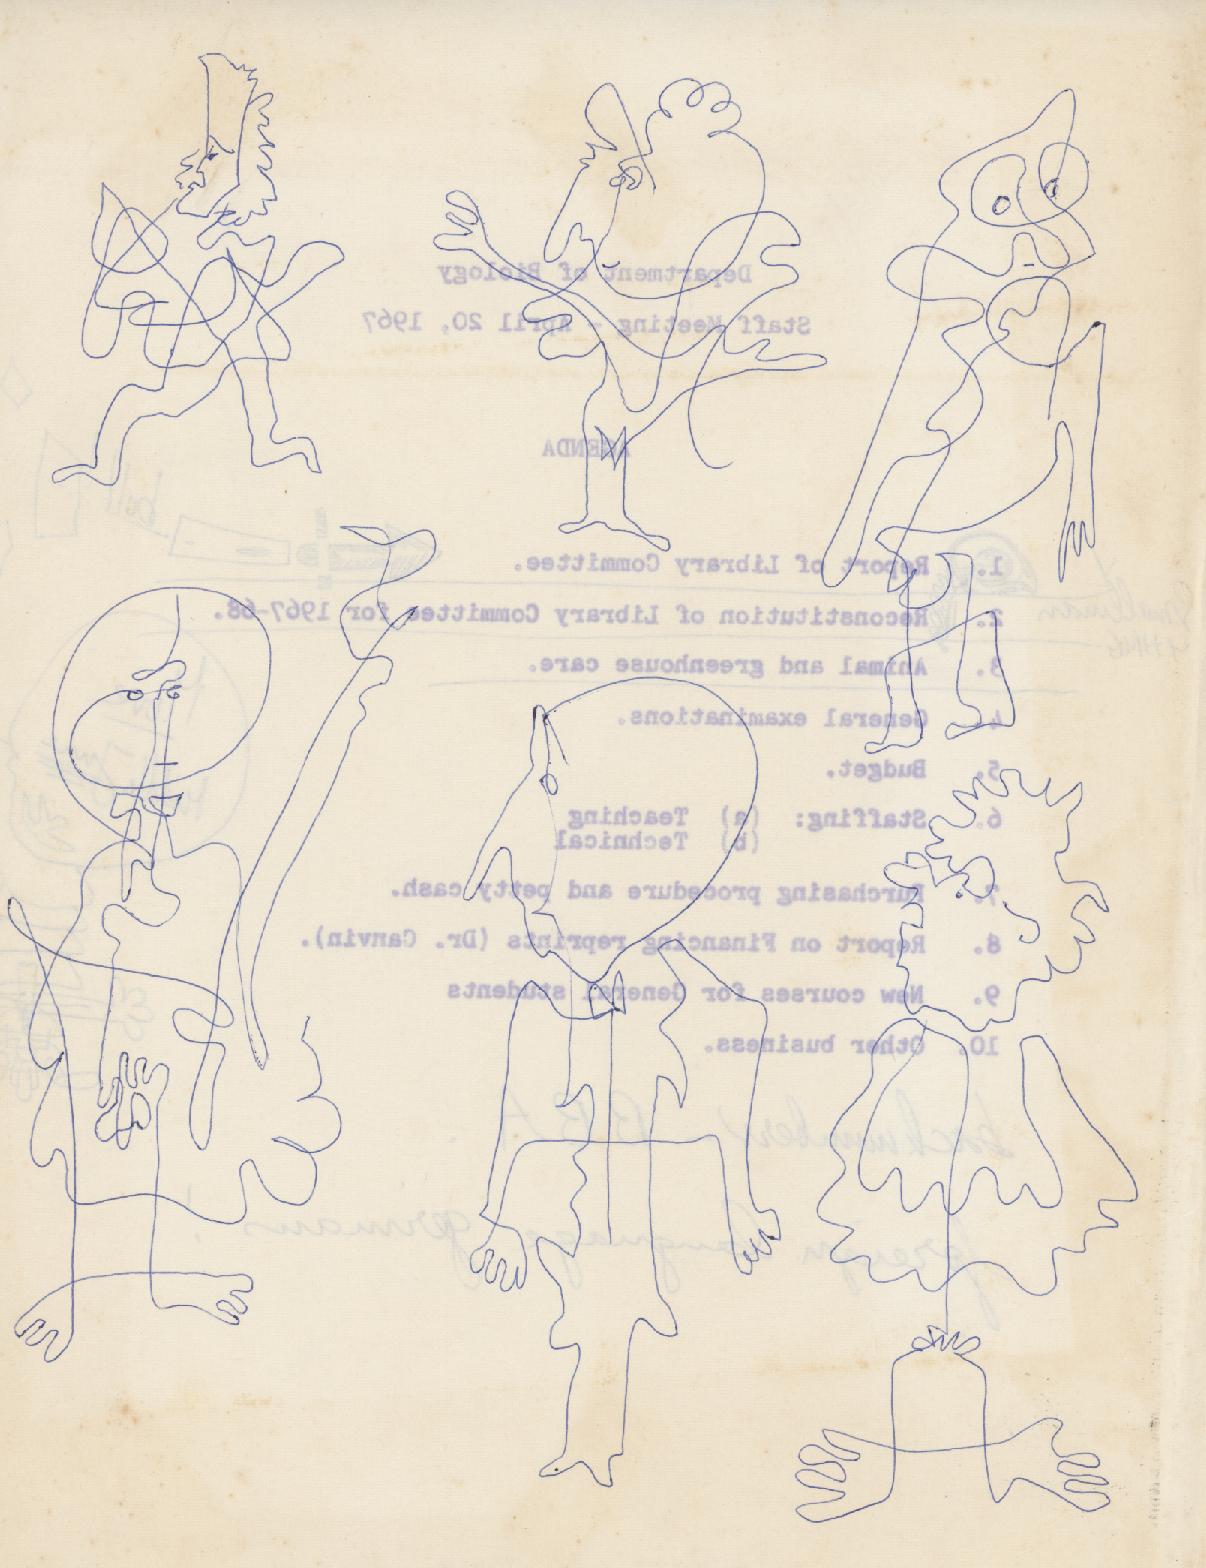 Department of Biology
Staff Meeting - April 20, 1967
AGENDA
1. Report of Library Committee.
2. Reconstitution of Library Committee for 1967-68.
3. Animal and greenhouse care.
4. General examinations.
5. Budget.
6. Staffing: (a) Teaching
(b) Technical
7. Purchasing procedure and petty cash.
8. Report on Financing reprints (Dr. Canvin).
9. New courses for General students
10. Other business.
foreign language germans !